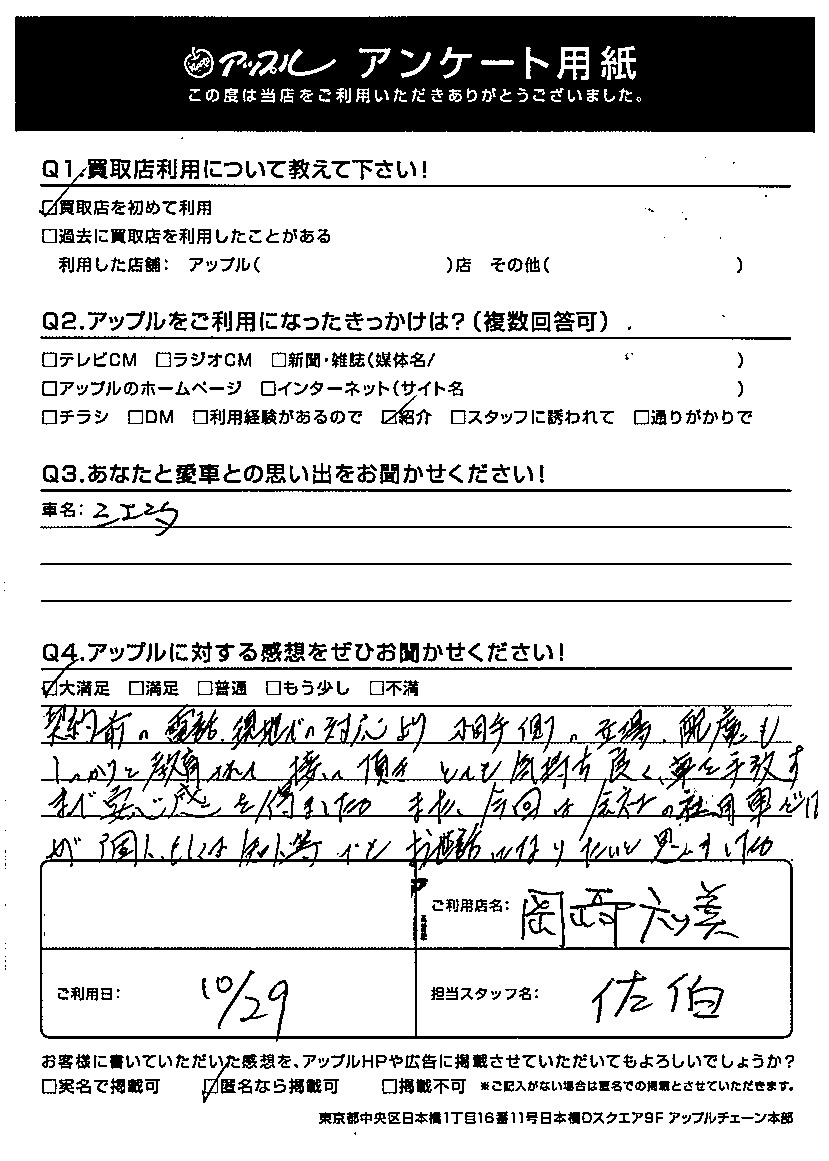 アップル アンケート用紙
この度は当店をご利用いただきありがとうございました。
Q1.買取店利用について教えて下さい!
☑買取店を初めて利用
□過去に買取店を利用したことがある
利用した店舗: アップル( )店 その他( )
Q2.アップルをご利用になったきっかけは?(複数回答可)
□テレビCM □ラジオCM □新聞・雑誌(媒体名/ )
□アップルのホームページ □インターネット(サイト名 )
□チラシ □DM □利用経験があるので ☑紹介 □スタッフに誘われて □通りがかりで
Q3.あなたと愛車との思い出をお聞かせください!
車名:
Q4.アップルに対する感想をぜひお聞かせください!
☑大満足 □満足 □普通 □もう少し □不満
契約前の電話、現地での対応より 相手側の立場、配慮も
しっかりと教育されて 接して頂き とても気持ち良く、車を手放す
まで安心感を得ました。また、今回は会社の社用車でした
が 個人、もしくは知人等でも お世話になりたいと思いました。
ご利用店名: 岡崎六ッ美
ご利用日: 10/29
担当スタッフ名: 佐伯
お客様に書いていただいた感想を、アップルHPや広告に掲載させていただいてもよろしいでしょうか?
□実名で掲載可 ☑匿名なら掲載可 □掲載不可 ※ご記入がない場合は匿名での掲載とさせていただきます。
東京都中央区日本橋1丁目16番11号日本橋Dスクエア9F アップルチェーン本部